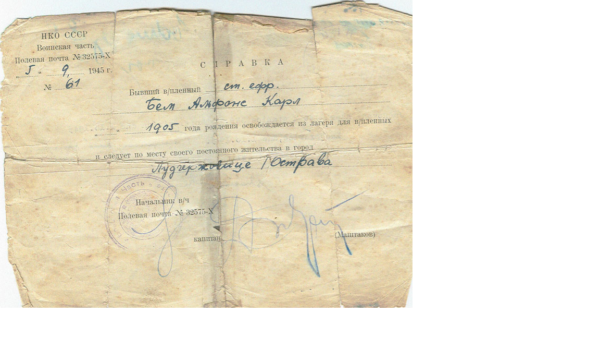 НКО СССР
Воинская часть
Полевая почта № 32575-X
5 . 9, 1945 г.
№ 61
СПРАВКА
Бывший в/пленный ст. ефр.
Бем Альфонс Карл
1905 года рождения освобождается из лагеря для в/пленных
и следует по месту своего постоянного жительства в город
Лудгержовице /Острава
Начальник в/ч
Полевая почта № 32575-X
капитан
(Маштаков)